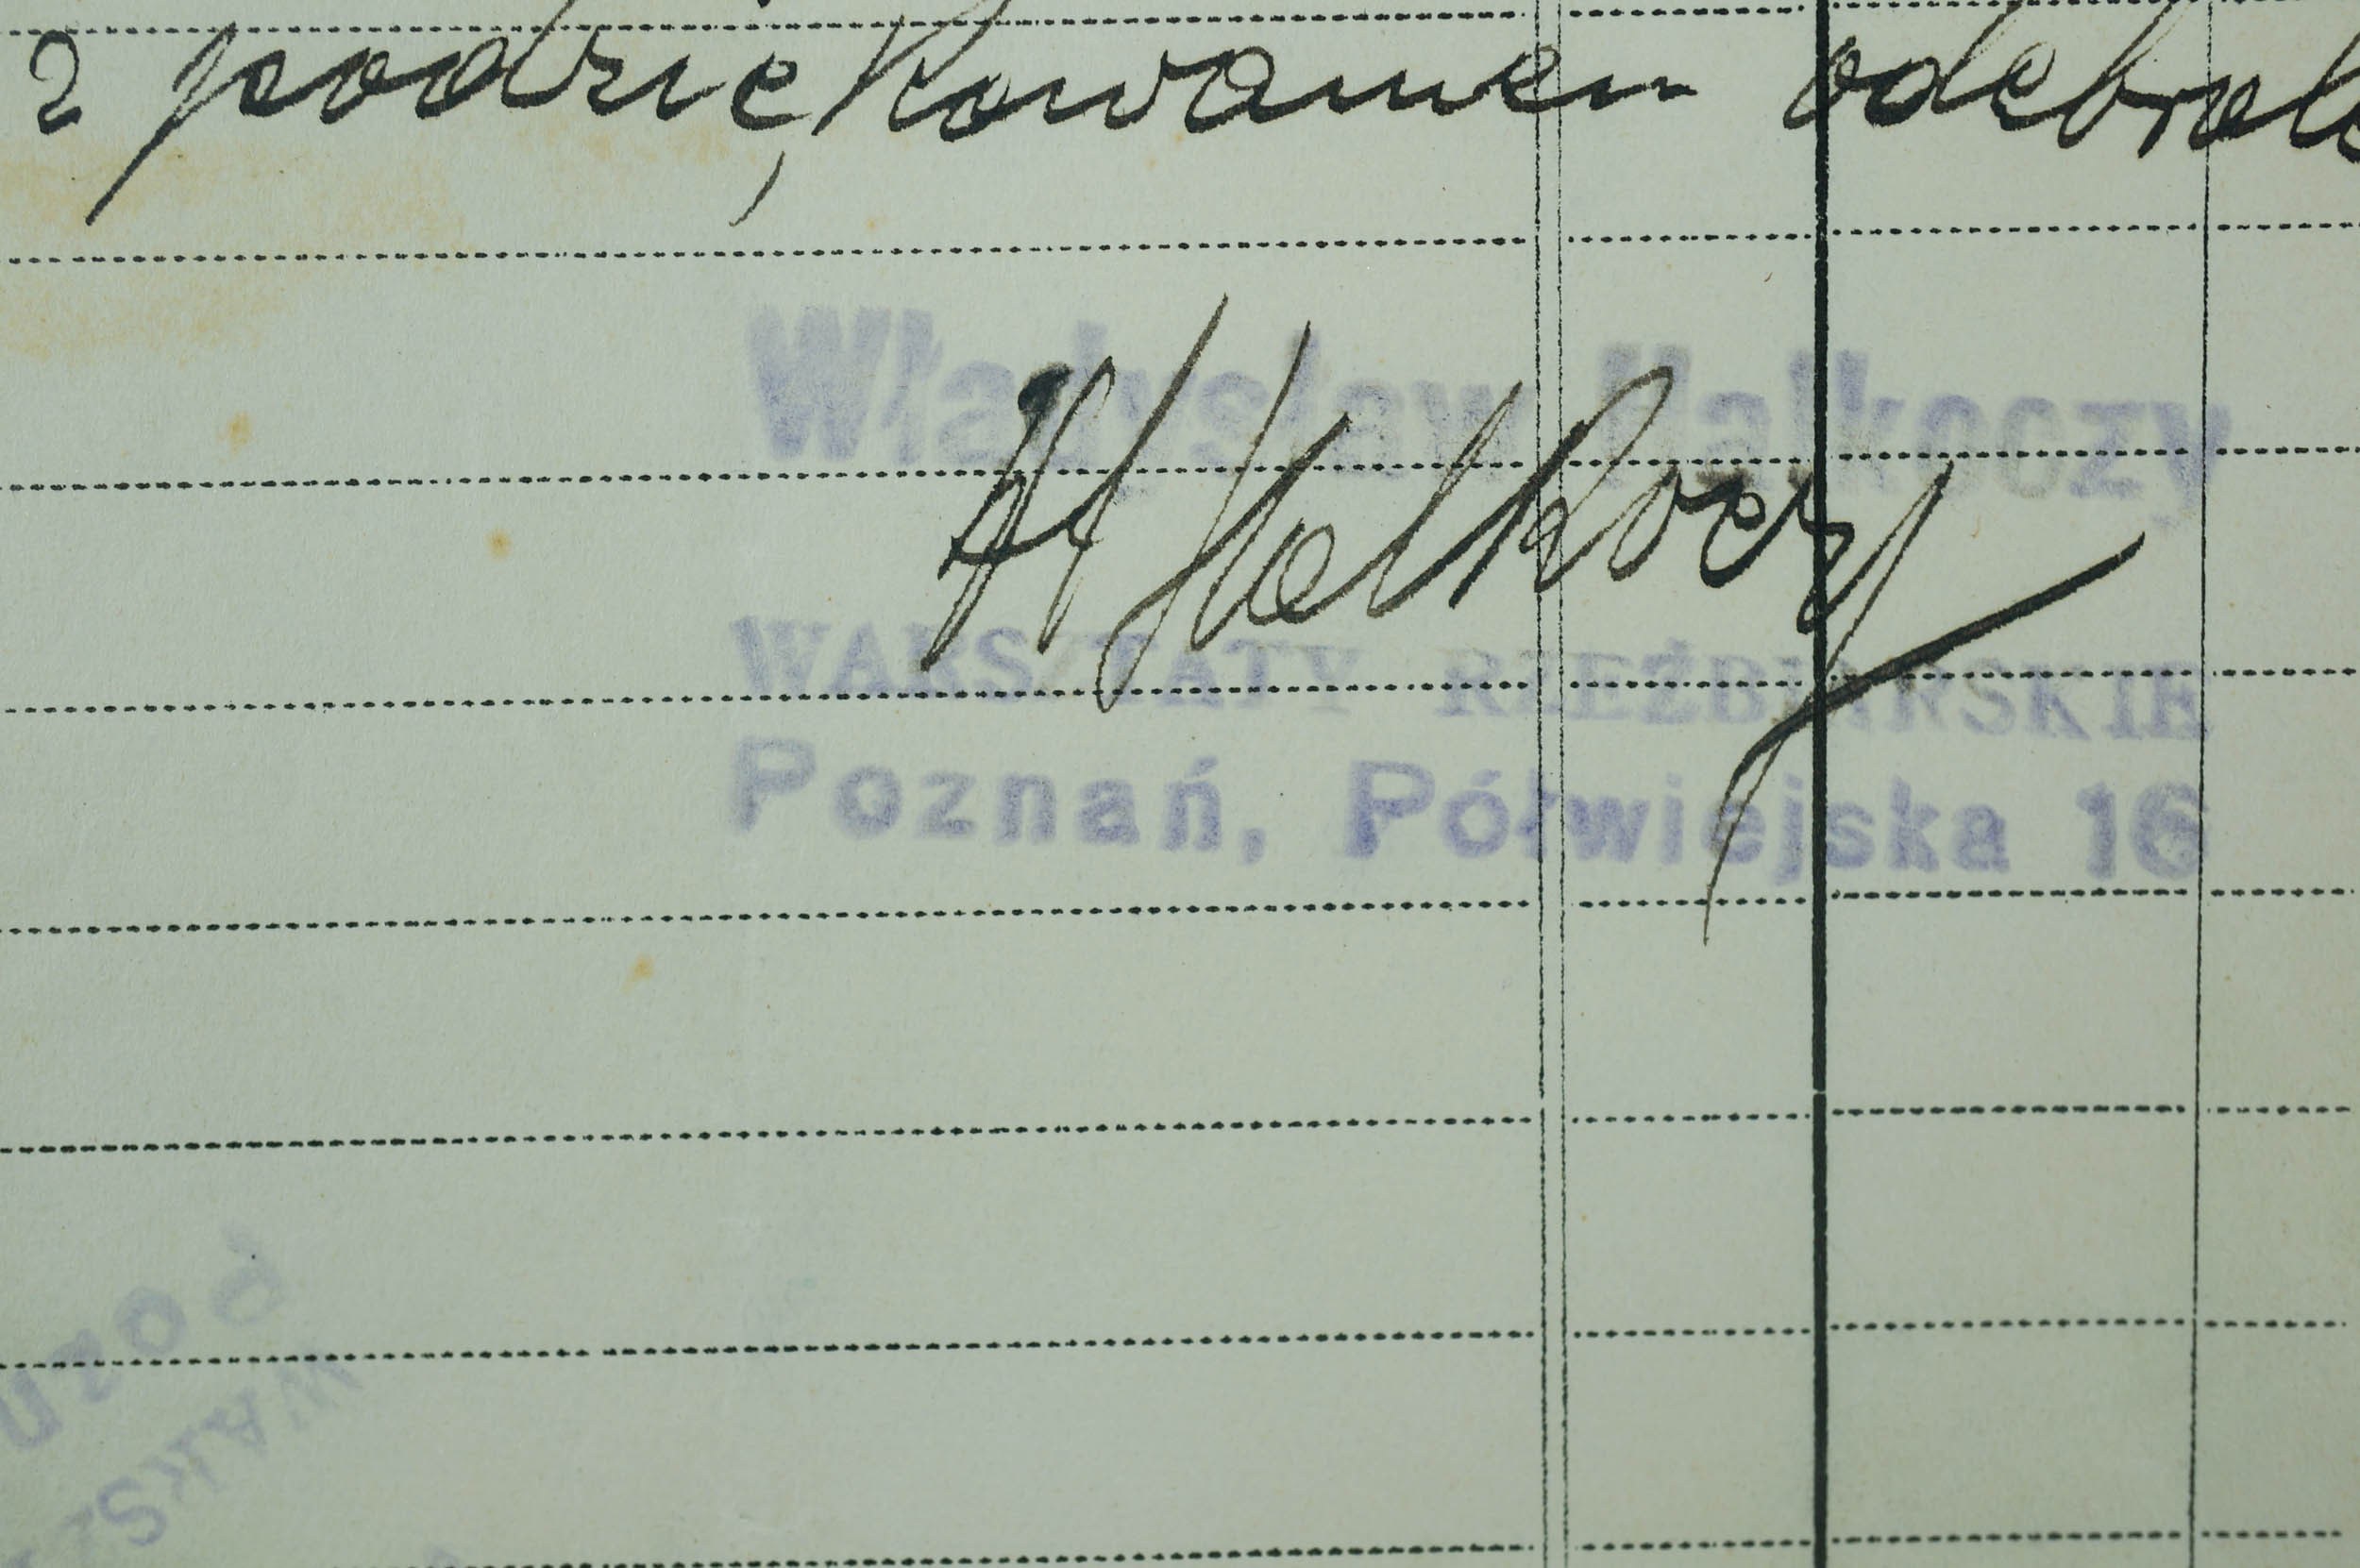 z podziękowaniem odebrał
Władysław Hałkoczy
W Hałkoczy
WARSZTATY RZEŹBIARSKIE
Poznań, Półwiejska 16
Pozn
WARSZ